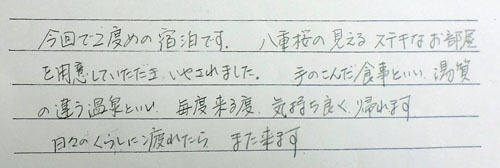 今回で2度めの宿泊です. 八重桜の見えるステキなお部屋
を用意していただき いやされました. 手のこんだ食事といい 湯質
の違う温泉といい 毎度来る度、気持ち良く帰れます
日々のくらしに疲れたら また来ます